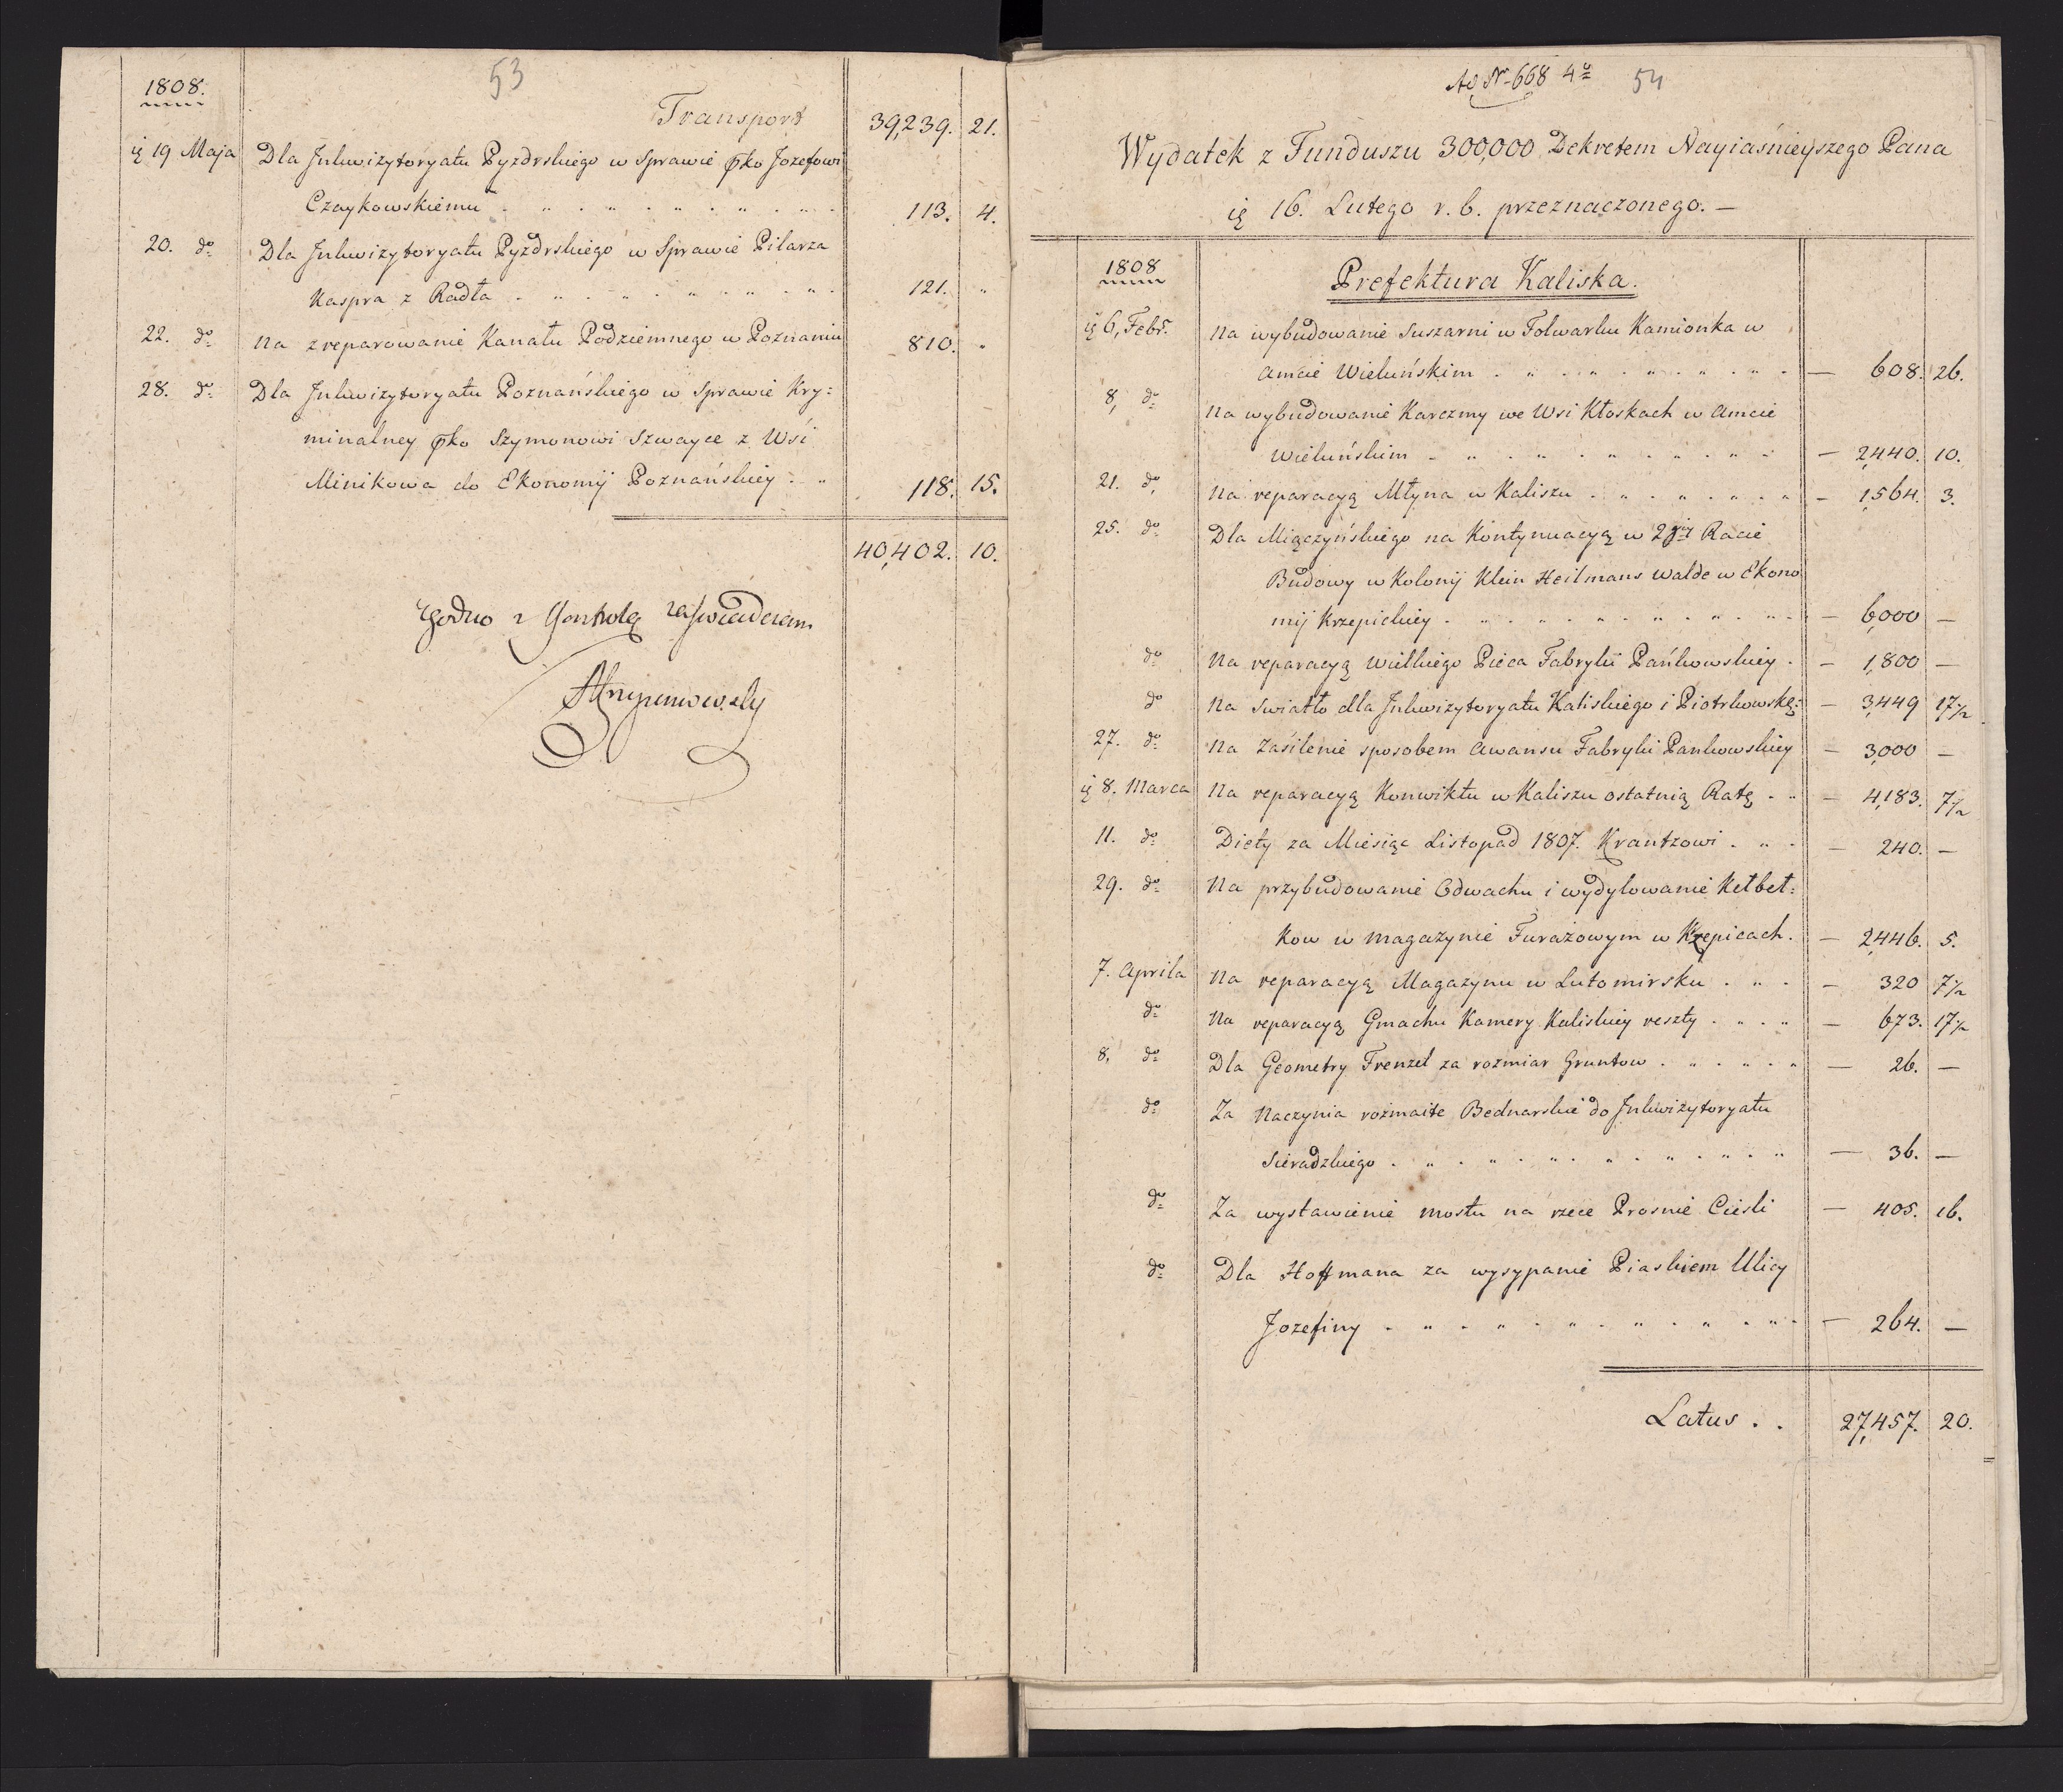 53
1808.
Transport 39,239. 21.
ię 19 Maja Dla Inkwizytoryatu Pyzdrskiego w Sprawie pko Jozefowi
Czaykowskiemu 113. 4.
20. do Dla Inkwizytoryatu Pyzdrskiego w Sprawie Pilarza
Kaspra z Radła 121. "
22. do Na zreparowanie Kanału Podziemnego w Poznaniu 810. "
28. do Dla Inkwizytoryatu Poznańskiego w Sprawie Kry:
minalney pko Szymonowi Szwayce z Wsi
Minikowa do Ekonomij Poznańskiey 118. 15.
40,402. 10.
Zgodno z Kontrolą zaświadczam
Ad Nr 668 4o 54
Wydatek z Funduszu 300,000 Dekretem Nayiaśnieyszego Pana
ię 16. Lutego r. b. przeznaczonego. —
1808 Prefektura Kaliska.
ię 6, Febr. Na wybudowanie Suszarni w Folwarku Kamionka w
Amcie Wieluńskim — 608. 26.
8, do Na wybudowanie Karczmy we Wsi Kłoskach w Amcie
Wieluńskim — 2,440. 10.
21. do, Na reparacyą Młyna w Kaliszu — 1,564. 3.
25. do Dla Miączyńskiego na Kontynuacyą w 2giey Racie
Budowy w Kolonij Klein Heilmans Walde w Ekono
mij Krzepickiey — 6,000 —
do Na reparacyą wielkiego Pieca Fabryki Pańkowskiey — 1,800 —
do Na Swiatło dla Inkwizytoryatu Kaliskiego i Piotrkowskę: — 3,449 17 1/2
27. do Na Zasilenie sposobem Awansu Fabryki Pankowskiey — 3,000 —
ię 8. Marca Na reparacyą Konwiktu w Kaliszu ostatnią Ratę — 4,183. 7 1/2
11. do Diety za Miesiąc Listopad 1807. Krantzowi — 240. —
29. do Na przybudowanie Odwachu i wydylowanie Ketbet:
Kow w Magazynie Furażowym w Krzepicach. — 2,446. 5.
7. Aprila Na reparacyą Magazynu w Lutomirsku — 320 7 1/2
do Na reparacyą Gmachu Kamery Kaliskiey reszty — 673. 17 1/2
8, do Dla Geometry Frenzel za rozmiar Gruntow — 26. —
do Za Naczynia rozmaite Bednarskie do Inkwizytoryatu
Sieradzkiego — 36. —
do Za wystawienie mostu na rzece Prosnie Cieśli — 405. 16.
do Dla Hoffmana za wysypanie Piaskiem Ulicy
Jozefiny — 264. —
Latus . . 27,457. 20.